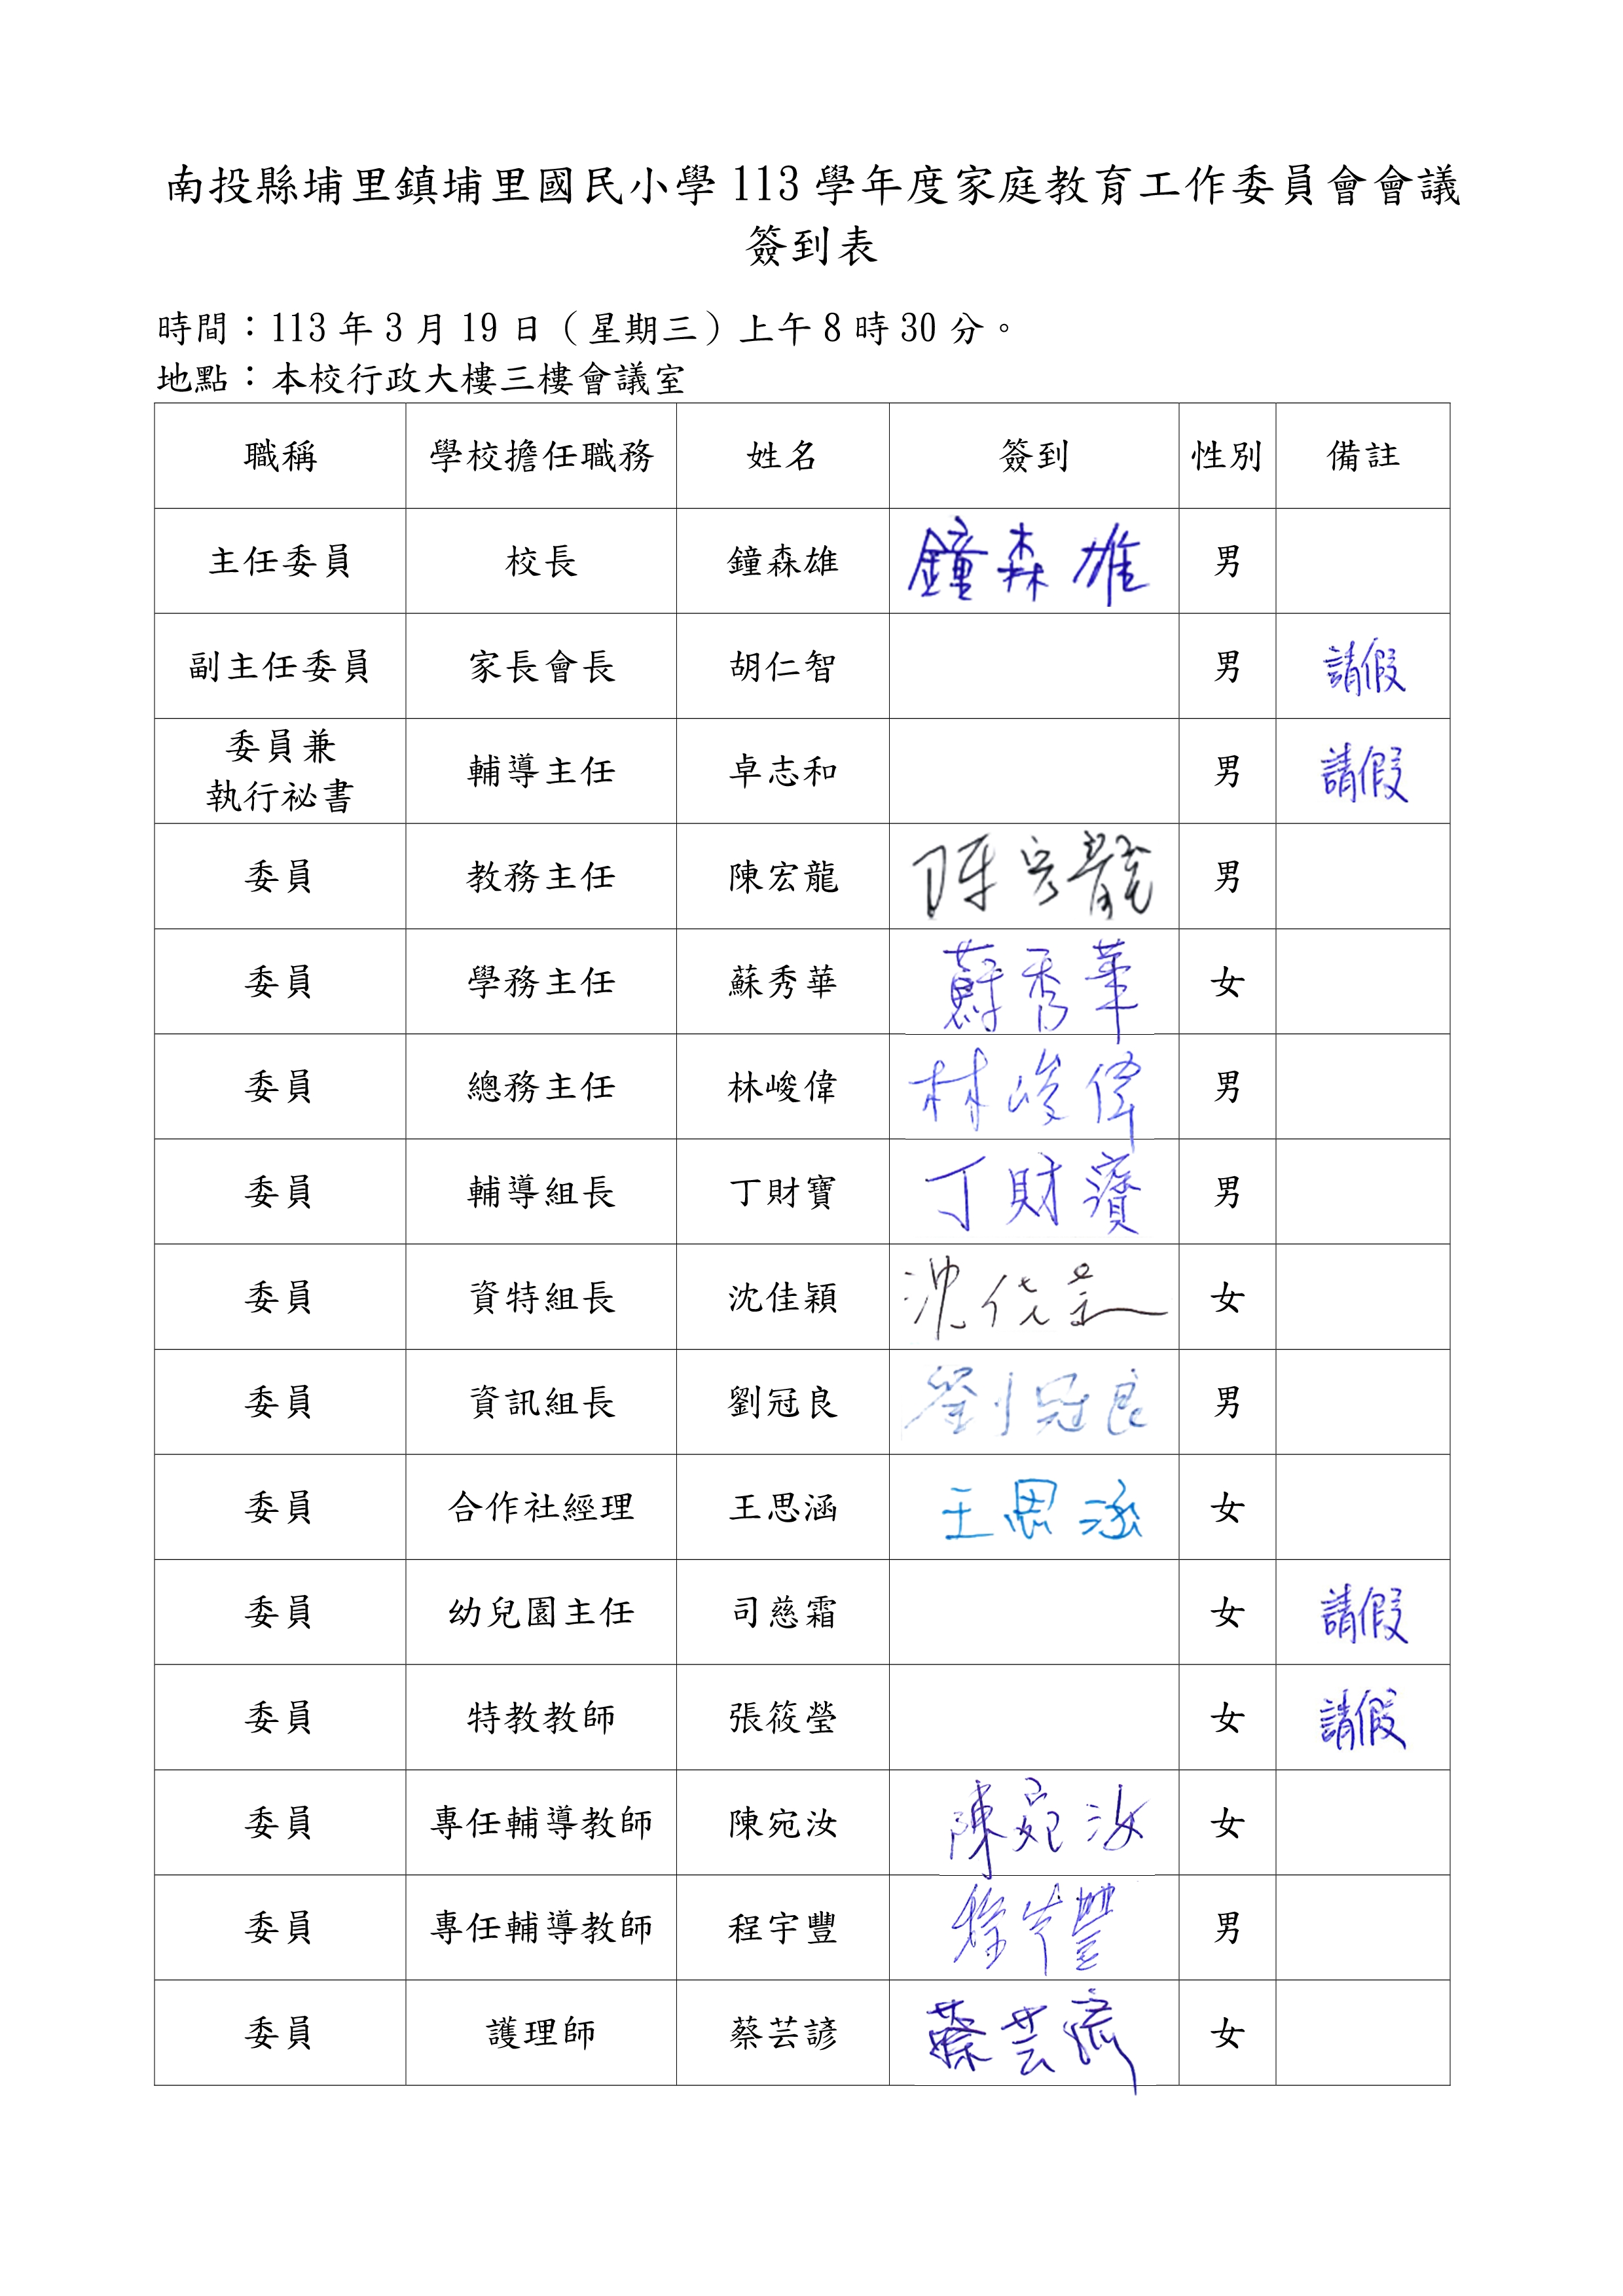 南投縣埔里鎮埔里國民小學 113 學年度家庭教育工作委員會會議
簽到表
時間：113 年 3 月 19 日（星期三）上午 8 時 30 分。
地點：本校行政大樓三樓會議室
職稱 學校擔任職務 姓名 簽到 性別 備註
主任委員 校長 鐘森雄 鐘森雄 男
副主任委員 家長會長 胡仁智 男 請假
委員兼
執行祕書 輔導主任 卓志和 男 請假
委員 教務主任 陳宏龍 陳宏龍 男
委員 學務主任 蘇秀華 蘇秀華 女
委員 總務主任 林峻偉 林峻偉 男
委員 輔導組長 丁財寶 丁財寶 男
委員 資特組長 沈佳穎 沈佳穎 女
委員 資訊組長 劉冠良 劉冠良 男
委員 合作社經理 王思涵 王思涵 女
委員 幼兒園主任 司慈霜 女 請假
委員 特教教師 張筱瑩 女 請假
委員 專任輔導教師 陳宛汝 陳宛汝 女
委員 專任輔導教師 程宇豐 程宇豐 男
委員 護理師 蔡芸諺 蔡芸諺 女